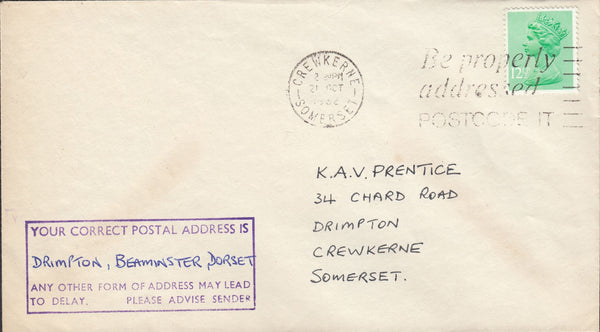 CREWKERNE
21 OCT
SOMERSET
Be properly
addressed
POSTCODE IT
12
K.A.V. PRENTICE
34 CHARD ROAD
DRIMPTON
CREWKERNE
SOMERSET.
YOUR CORRECT POSTAL ADDRESS IS
DRIMPTON, BEAMINSTER, DORSET
ANY OTHER FORM OF ADDRESS MAY LEAD
TO DELAY. PLEASE ADVISE SENDER